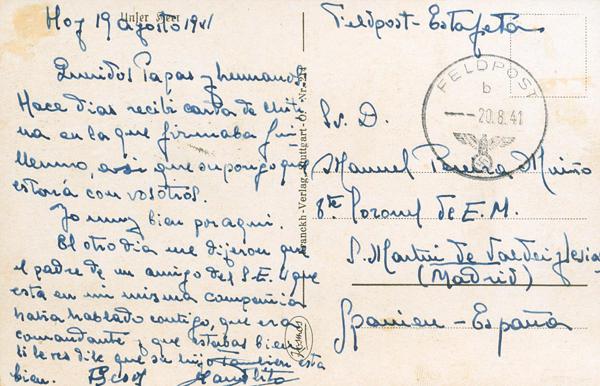 Unser Heer
Hoy 19 agosto 1941
Queridos Papas y hermanos
Hace dias recibí carta de
en la que firmaba
así que supongo que
estaría con vosotros.
Yo muy bien por aqui.
El otro dia me dijeron que
el padre de un amigo del S.E.U que
esta en mi misma compañia
habia hablado contigo, que era
comandante y que estabas bien
si le ves dile que su hijo tambien esta
bien. Besos Manolito
Franckh-Verlag Stuttgart-O. Nr. 214
Kosmos
Feldpost - Estafeta
FELDPOST
b
20.8.41
Sr. D.
Manuel Muiño
Coronel de E. M.
S. Martin de Valdeiglesias
(Madrid)
Spanien - España